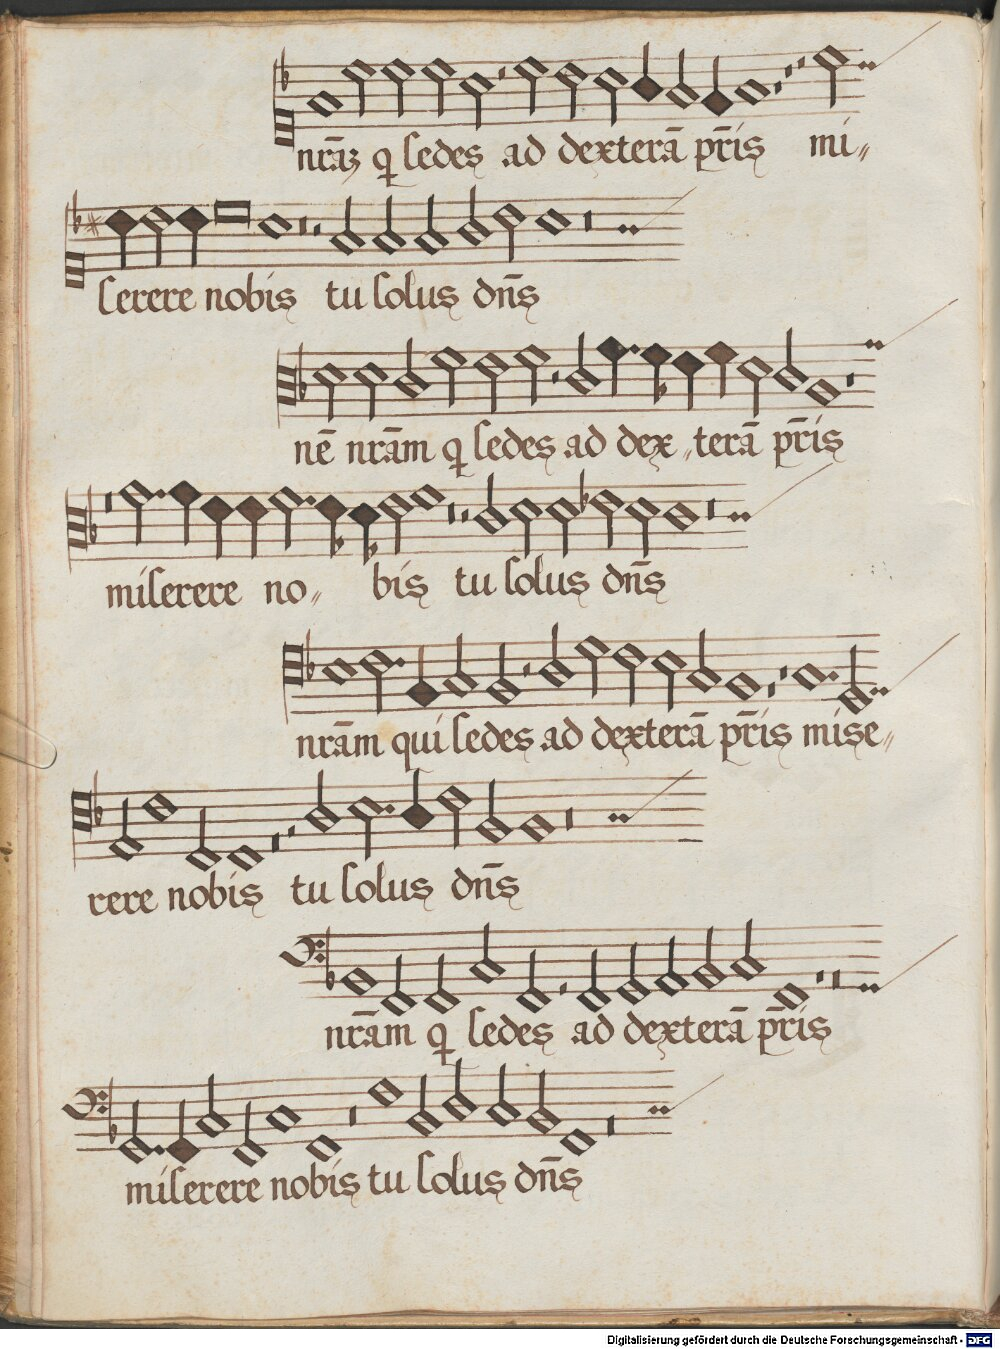 nrāꝫ q ſedes ad dexterā pr̄is mi„
ſerere nobis tu ſolus dn̄s
nē nrām q ſedes ad dex„terā pr̄is
miſerere no„ bis tu ſolus dn̄s
nrām qui ſedes ad dexterā pr̄is miſe„
rere nobis tu ſolus dn̄s
nrām q ſedes ad dexterā pr̄is
miſerere nobis tu ſolus dn̄s
Digitalisierung gefördert durch die Deutsche Forschungsgemeinschaft - DFG